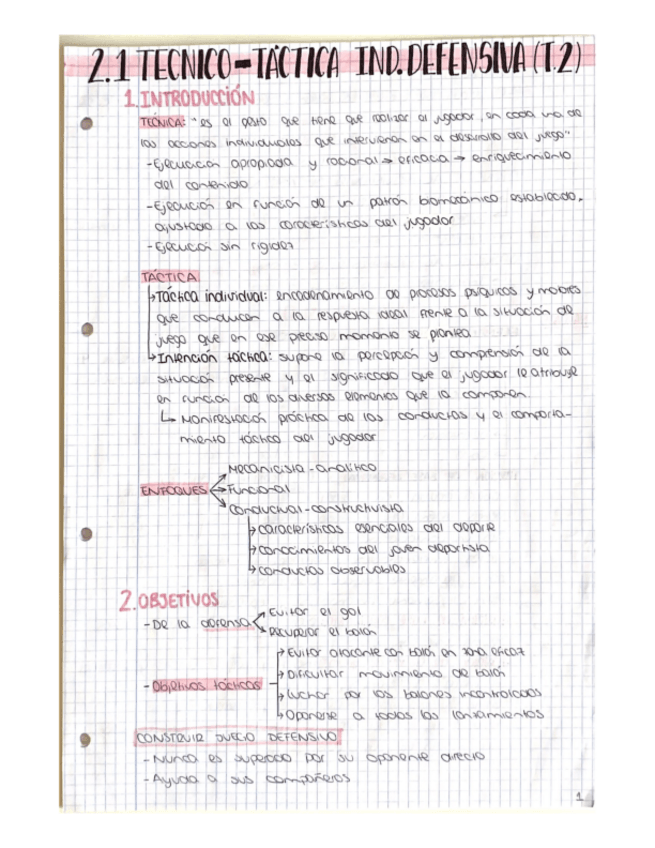 2.1 TECNICO-TÁCTICA IND. DEFENSIVA (T.2)
1. INTRODUCCIÓN
TÉCNICA: "es el gesto que tiene que realizar el jugador, en cada una de
las acciones individuales que intervienen en el desarrollo del juego"
-Ejecución apropiada y racional → eficaca → enriquecimiento
del contenido
-Ejecución en función de un patrón biomecánico establecido,
ajustado a las características del jugador
-Ejecución sin rigidez
TÁCTICA
↳Táctica individual: encadenamiento de procesos psíquicos y motores
que conducen a la respuesta ideal frente a la situación de
juego que en ese preciso momento se plantea
↳Intención táctica: supone la percepción y comprensión de la
situación presente y el significado que el jugador le atribuye
en función de los diversos elementos que la componen
↳ Manifestación práctica de las conductas y el comporta-
miento táctico del jugador
Mecanicista-analítico
ENFOQUES → Funcional
Conductual-constructivista
↳características esenciales del deporte
↳conocimientos del joven deportista
↳conductas observables
2. OBJETIVOS
Evitar el gol
-De la defensa
Recuperar el balón
→Evitar atacante con balón en zona eficaz
→Dificultar movimiento de balón
-Objetivos tácticos
→Luchar por los balones incontrolados
↳Oponerse a todos los lanzamientos
CONSTRUIR JUEGO DEFENSIVO
-Nunca es superado por su oponente directo
-Ayuda a sus compañeros
1